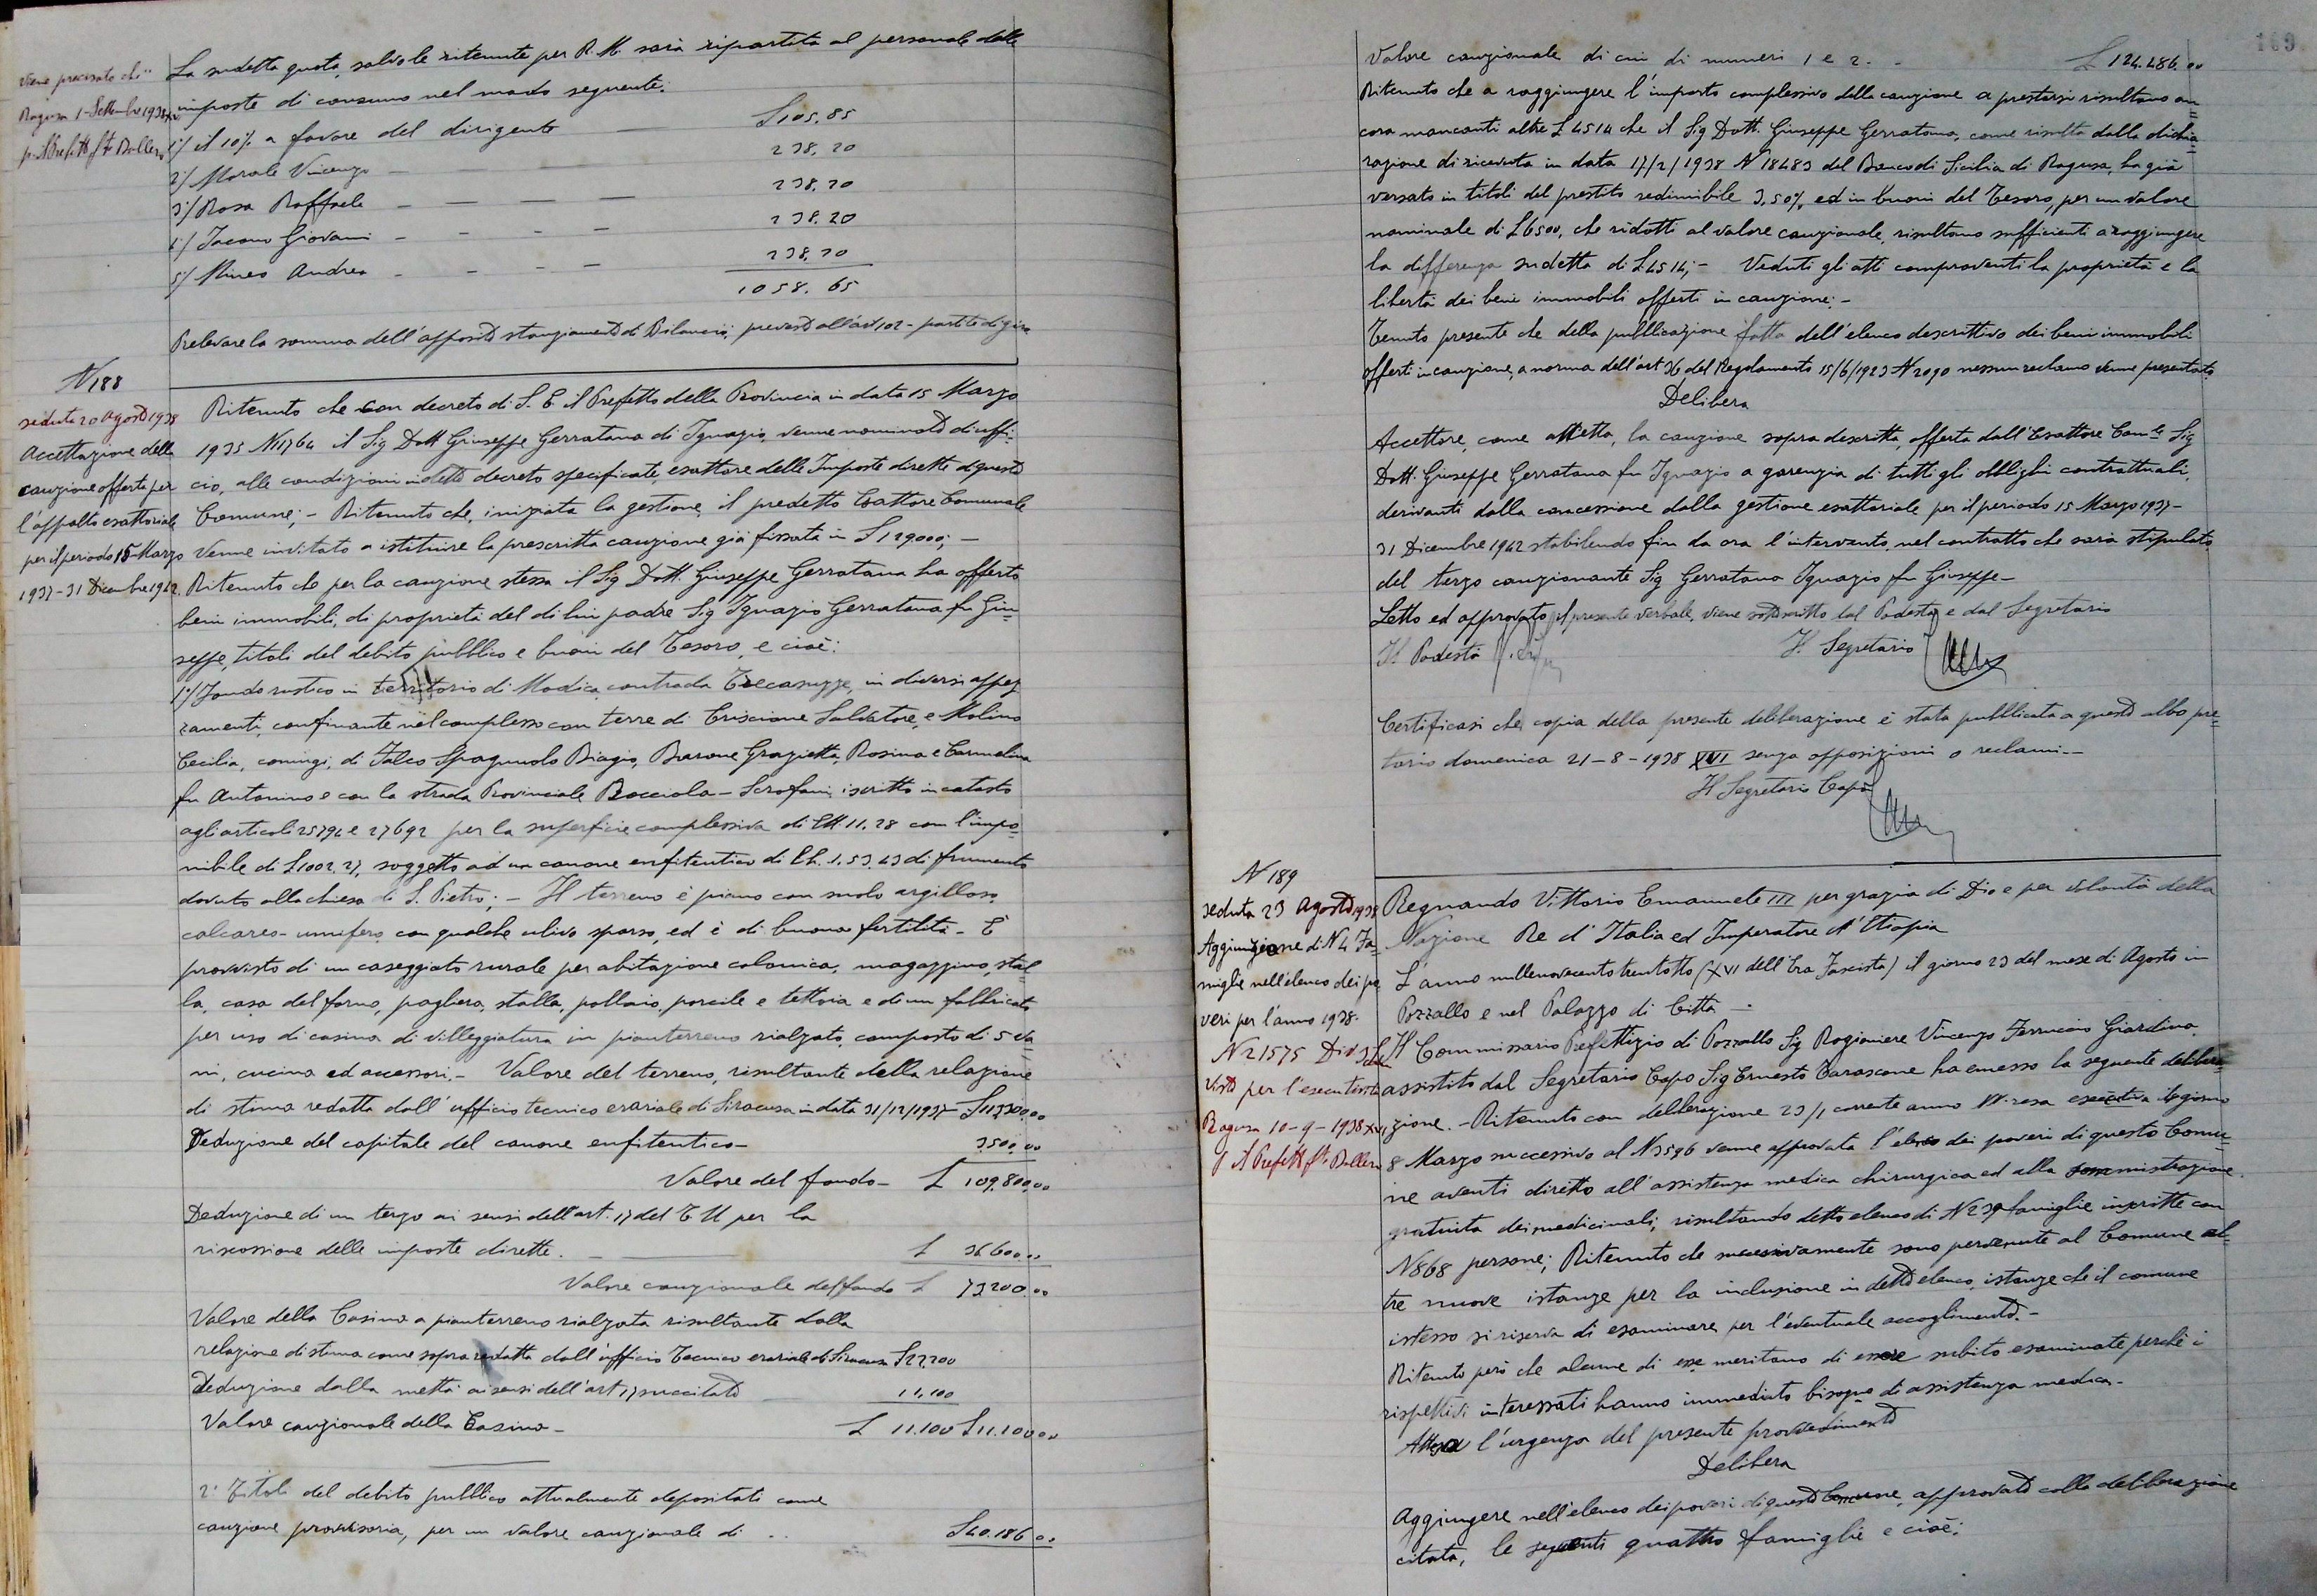 Viene precisato che
Ragusa 1-Settembre 1938 XVI
p. Il Prefetto fto Ballero
La sudetta quota, salvo le ritenute per R.M. sarà ripartita al personale delle
imposte di consumo nel modo seguente:
1°/ il 10% a favore del dirigente — £105.85
2°/ Morale Vincenzo — — — 238.20
3°/ Rosa Raffaele — — — — 238.20
4°/ Iacono Giovanni — — — 238.20
5°/ Mineo Andrea — — — 238.20
1058.65
Prelevare la somma dell'apposito stanziamento di Bilancio, previsto all'art 102 - partite di giro
N 188
seduta 20 Agosto 1938
Accettazione della
cauzione offerta per
l'appalto esattoriale
per il periodo 15 Marzo
1937-31 Dicembre 1942.
Ritenuto che con decreto di S.E. il Prefetto della Provincia in data 15 Marzo
1935 N 11764 il Sig Dott Giuseppe Gerratana di Ignazio, venne nominato d'uffi-
cio, alle condizioni in detto decreto specificate, esattore delle Imposte dirette di questo
Comune; - Ritenuto che, iniziata la gestione, il predetto Esattore Comunale
venne invitato a istituire la prescritta cauzione già fissata in £ 129000; —
Ritenuto che per la cauzione stessa il Sig Dott. Giuseppe Gerratana ha offerto
beni immobili, di proprietà del di lui padre Sig Ignazio Gerratana fu Giu=
seppe, titoli del debito pubblico e buoni del Tesoro, e cioè:
1°/ Fondo rustico in territorio di Modica contrada Trecasuzze, in diversi appez
zamenti, confinante nel complesso con terre di Criscione Salvatore, e Molino
Cecilia, coniugi, di Falco Spagnuolo Biagio, Barone Grazietta, Rosina e Carmelina
fu Antonino e con la strada Provinciale Bocciola - Scrofani, iscritto in catasto
agli articoli 25794 e 27692 per la superficie complessiva di Ett 11.28 con l'impo=
nibile di £1002.21, soggetto ad un canone enfiteutico di Eh. 1.53.43 di frumento
dovuto alla chiesa di S. Pietro; - Il terreno è piano con suolo argilloso
calcareo-umifero, con qualche ulivo sparso, ed è di buona fertilità - È
provvisto di un caseggiato rurale per abitazione colonica, magazzino, stal
la, casa del forno, pagliera, stalla, pollaio, porcile e tettoia e di un fabbricato
per uso di casina di villeggiatura in pianterreno rialzato, composto di 5 va=
ni, cucina ed accessori. - Valore del terreno, risultante della relazione
di stima redatta dall'ufficio tecnico erariale di Siracusa in data 31/12/1937 - £113300.00
Deduzione del capitale del canone enfiteutico - 3500,00
Valore del fondo - £ 109.800,00
Deduzione di un terzo ai sensi dell'art. 17 del T.U per la
riscossione delle imposte dirette. — £ 36600.00
Valore cauzionale del fondo £ 73200.00
Valore della Casina a pianterreno rialzata risultante dalla
relazione di stima come sopra redatta dall'ufficio Tecnico erariale di Siracusa £22.200
Deduzione dalla mettà ai sensi dell'art 17 succitato — 11,100
Valore cauzionale della Casina - £ 11.100 £11.100.00
2° Titoli del debito pubblico attualmente depositati come
cauzione provvisoria, per un valore cauzionale di .. £40.186.00
169
Valore cauzionale di cui di numeri 1 e 2. - £ 124.486.00
Ritenuto che a raggiungere l'importo complessivo della cauzione a prestarsi risultano an
cora mancanti altre £ 4514 che il Sig Dott. Giuseppe Gerratana, come risulta dalla dichia
razione di ricevuta in data 17/2/1938 N 18483 del Banco di Sicilia di Ragusa, ha già
versato in titoli del prestito redimibile 3,50% ed in buoni del Tesoro, per un valore
nominale di £6500, che ridotti al valore cauzionale, risultano sufficienti a raggiungere
la differenza sudetta di £4514; - Veduti gli atti comprovanti la proprietà e la
libertà dei beni immobili offerti in cauzione; -
Tenuto presente che della pubblicazione fatta dell'elenco descrittivo dei beni immobili
offerti in cauzione, a norma dell'art 36 del Regolamento 15/6/1923 N 2090 nessun reclamo venne presentato.
Delibera
Accettare, come accetta, la cauzione sopra descritta, offerta dall'Esattore Com.le Sig
Dott. Giuseppe Gerratana fu Ignazio a garenzia di tutti gli obblighi contrattuali,
derivanti dalla concessione dalla gestione esattoriale per il periodo 15 Marzo 1937-
31 Dicembre 1942 stabilendo fin da ora l'intervento, nel contratto che sarà stipulato,
del terzo cauzionante Sig Gerratana Ignazio fu Giuseppe -
Letto ed approvato il presente verbale, viene sottoscritto dal Podestà e dal Segretario
Il Podestà Il Segretario
Certificasi che copia della presente deliberazione è stata pubblicata a questo albo pre=
torio domenica 21-8-1938 XVI senza opposizioni o reclami. -
Il Segretario Capo
N 189
seduta 23 Agosto 1938
Aggiunzione di N 4 Fa=
miglie nell'elenco dei po
veri per l'anno 1938.
N 21575 Div 3
Visto per l'esecutorietà
Ragusa 10-9-1938 XVI
p Il Prefetto fto Ballero
Regnando Vittorio Emanuele III per grazia di Dio e per volontà della
Nazione Re d'Italia ed Imperatore d'Etiopia
L'anno millenovecentotrentotto (XVI dell'Era Fascista) il giorno 23 del mese di Agosto in
Pozzallo e nel Palazzo di Città -
Il Commissario Prefettizio di Pozzallo Sig Ragioniere Vincenzo Ferruccio Giardina,
assistito dal Segretario Capo Sig Ernesto Tarascone ha emesso la seguente delibera
zione. - Ritenuto con deliberazione 23/1 corrente anno resa esecutiva il giorno
8 Marzo successivo al N 3596 venne approvata l'elenco dei poveri di questo Comu=
ne aventi diretto all'assistenza medica chirurgica ed alla somministrazione
gratuita dei medicinali; risultando detto elenco di N 239 famiglie inscritte con
N 868 persone; Ritenuto che successivamente sono pervenute al Comune al=
tre nuove istanze per la inclusione in detto elenco, istanze che il comune
istesso si riserva di esaminare per l'eventuale accoglimento. -
Ritenuto però che alcune di esse meritano di essere subito esaminate perchè i
rispettivi interessati hanno immediato bisogno di assistenza medica -
Attesa l'urgenza del presente provvedimento
Delibera
Aggiungere nell'elenco dei poveri di questo Comune, approvato colla deliberazione
citata, le seguenti quattro famiglie e cioè: